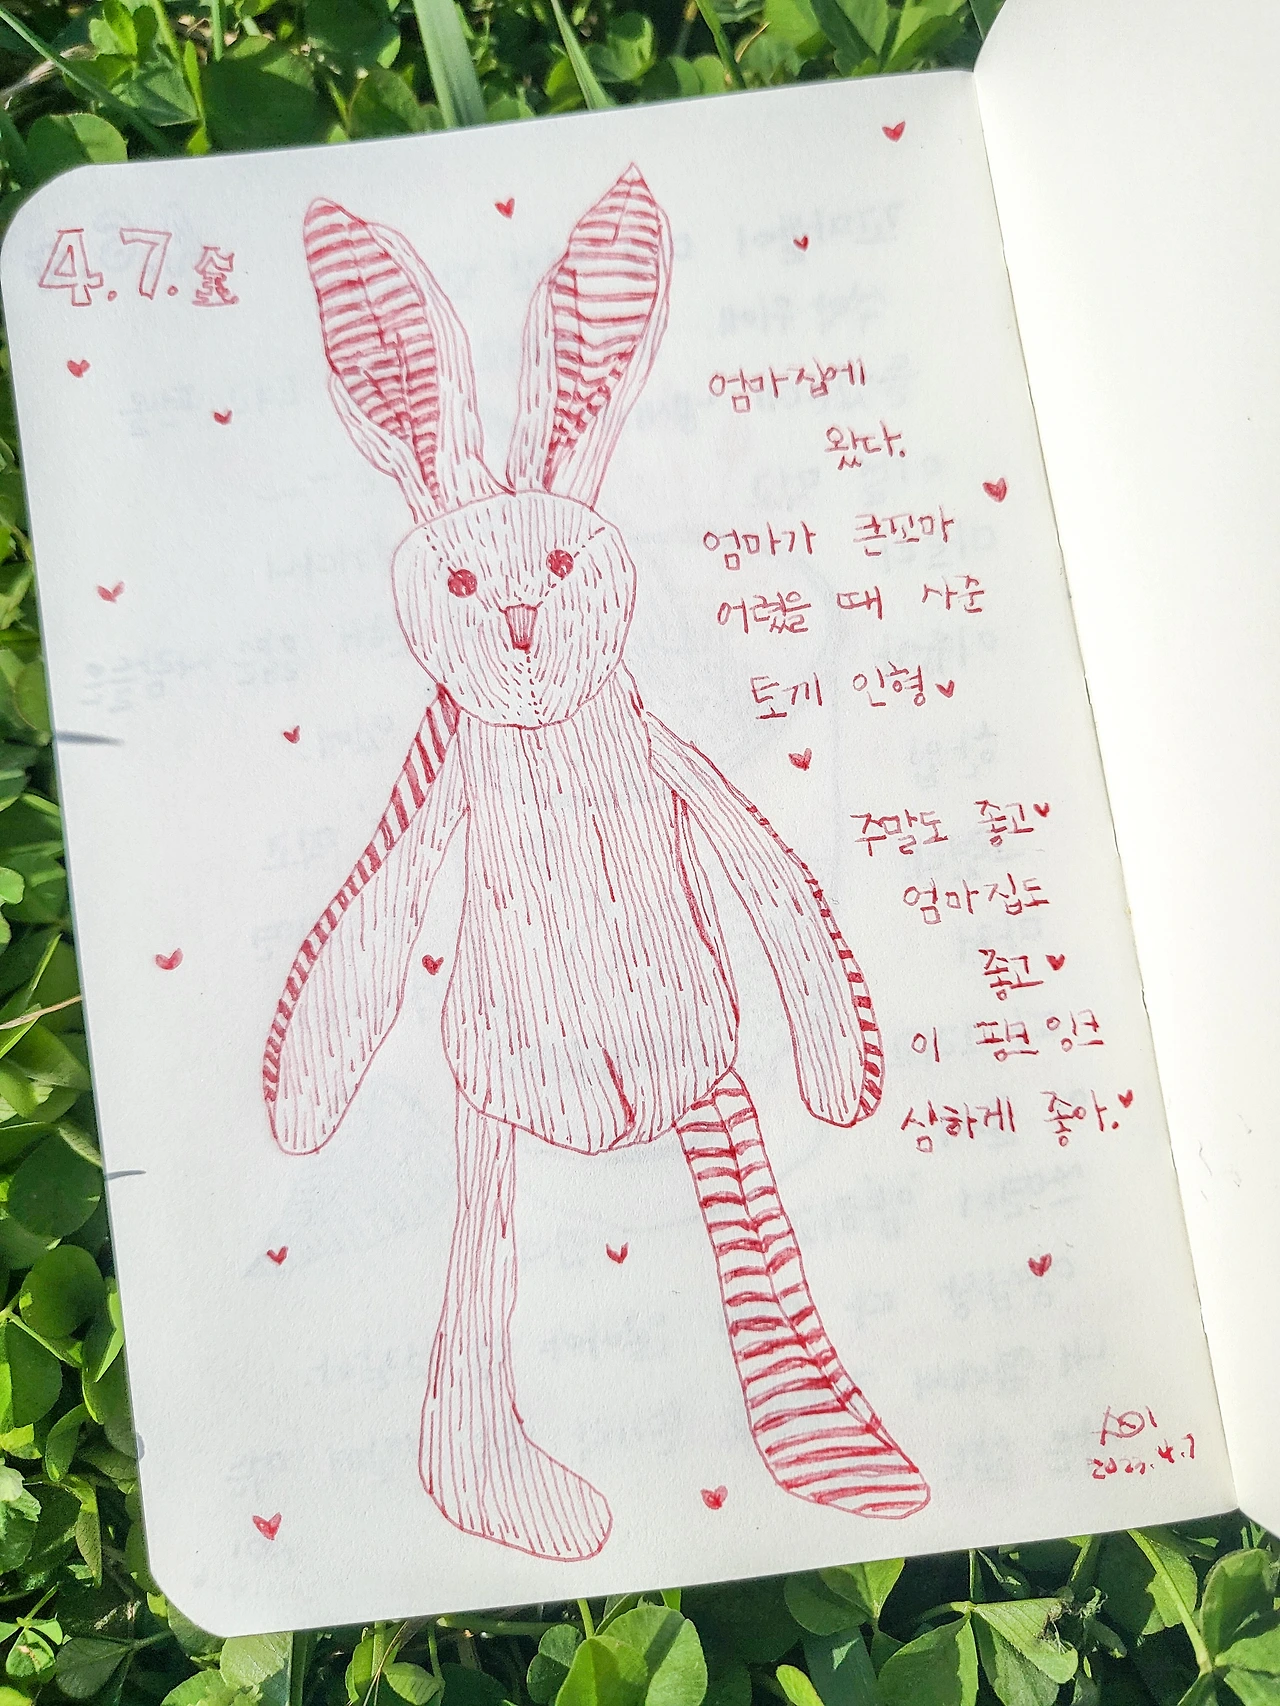 4.7.金
엄마집에
왔다.
엄마가 큰꼬마
어렸을 때 사준
토끼 인형♥
주말도 좋고♥
엄마집도
좋고♥
이 핑크 잉크
심하게 좋아.♥
2023.4.7